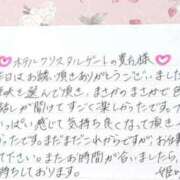 ♥ホテルクリスタルゲートの貴方様♥
日はお誘い頂きありがとうございました
咲を選んで頂き、まさかのまさかで色
話しが聞けてすごく楽しかったです。
っぱい感じて気持ち良くなって頂き
ったです。まだまだこれからですが、お身
ださい。またお時間が合いましたら、
待ちしております。 姫